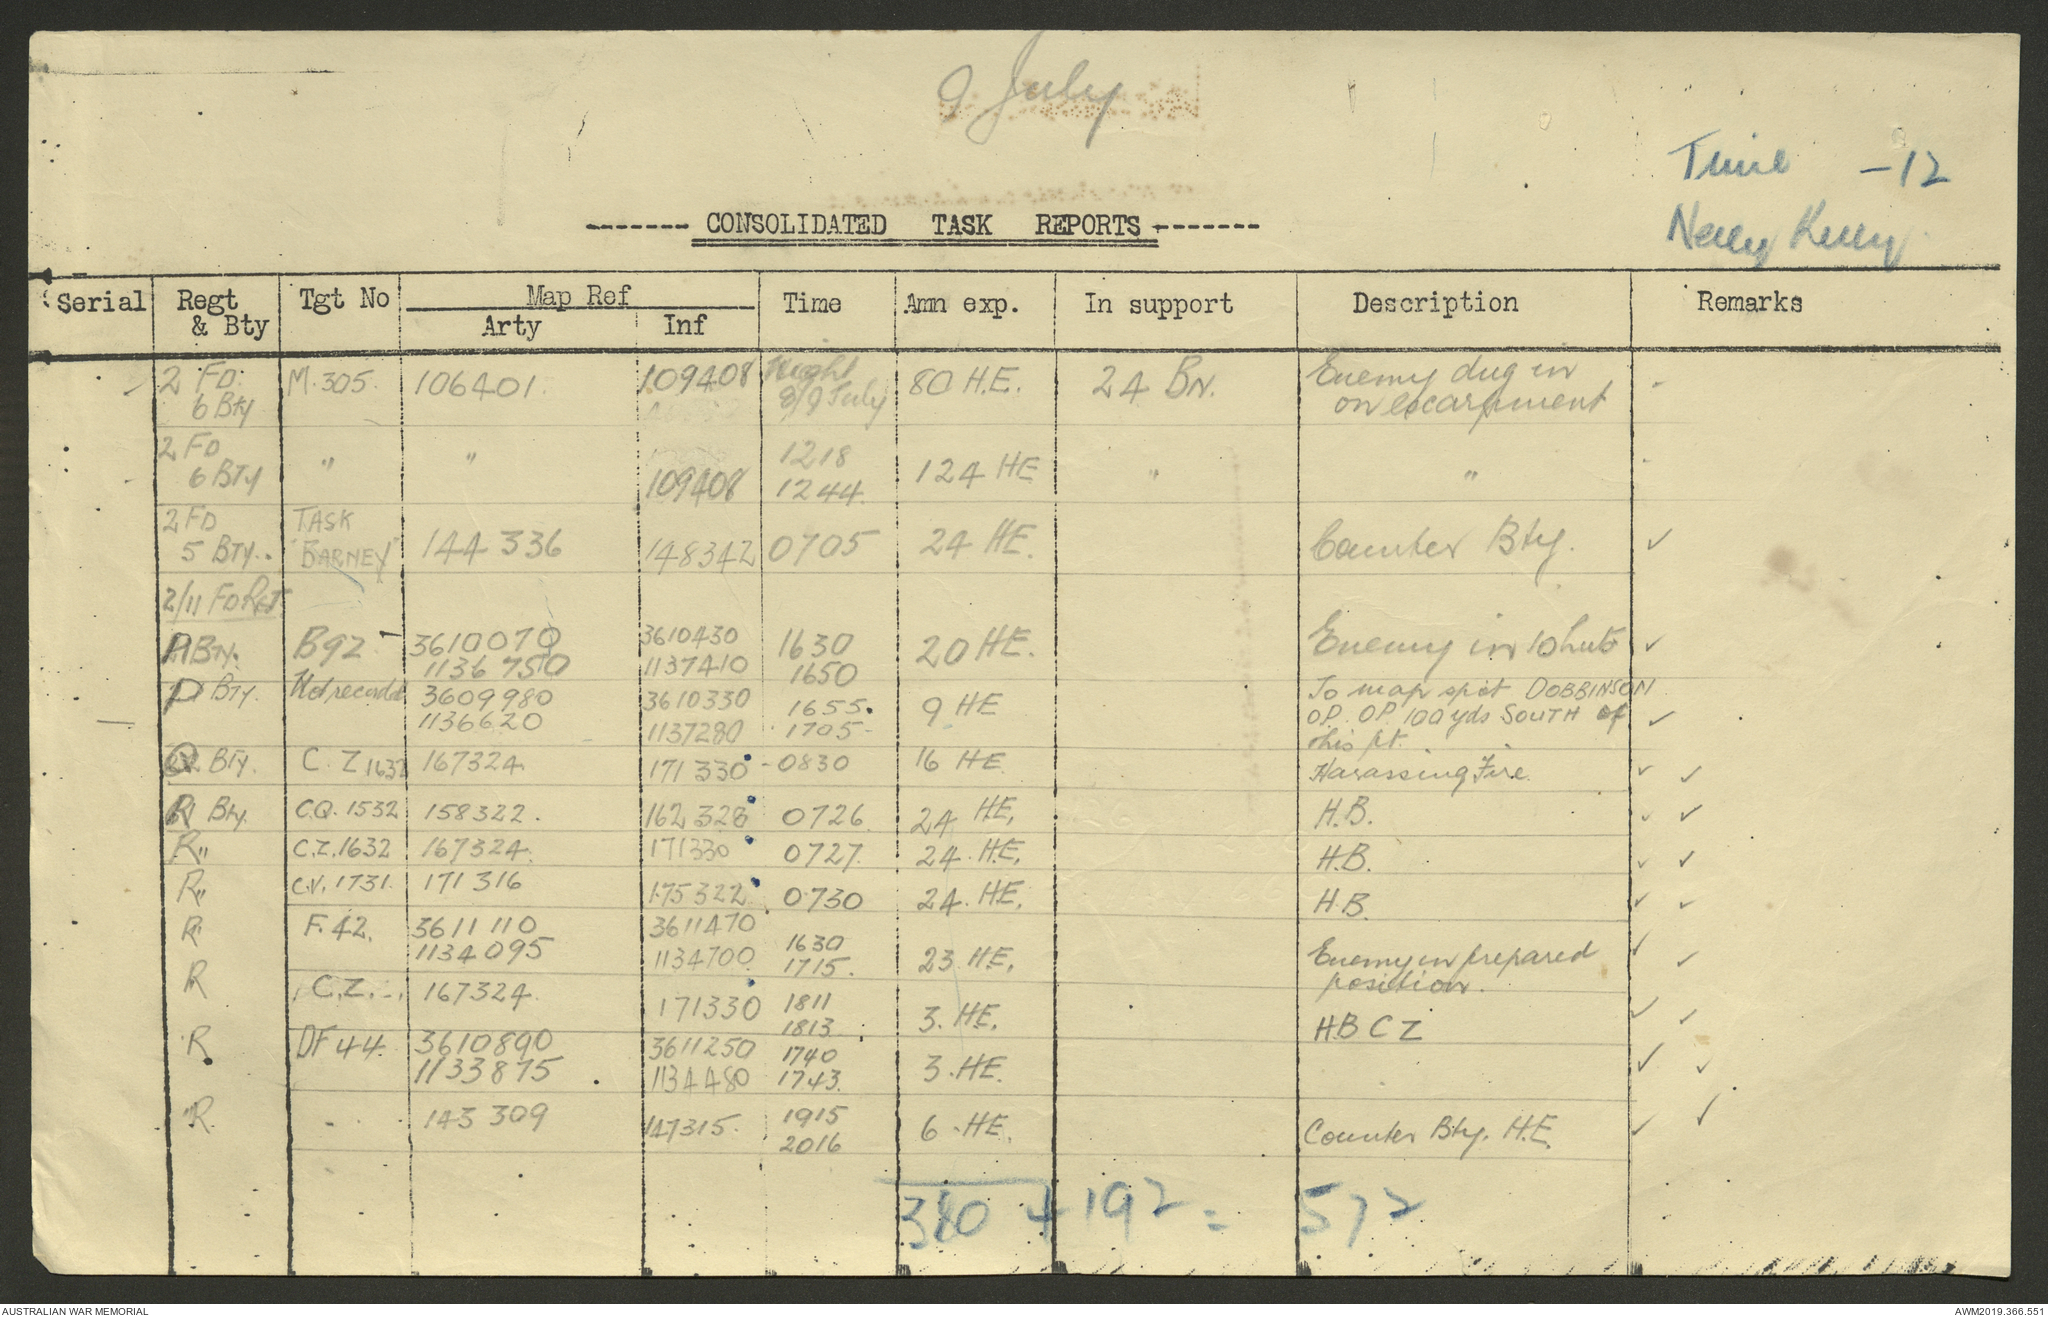 9 July
Time - 12
------- CONSOLIDATED TASK REPORTS -------
Serial Regt & Bty Tgt No Map Ref Arty Inf Time Amn exp. In support Description Remarks
2 FD. M.305. 106401. 109408 Night 80 H.E. 24 BN. Enemy dug in
6 Bty 8/9 July on escarpment
2 FD " " 1218 124 HE " "
6 BTY 109408 1244.
2 FD TASK
5 BTY.. "BARNEY" 144 336 148342 0705 24 HE. Counter Bty. ✓
2/11 FD RGT.
P BTY. B92 3610070 3610430 1630 20 HE. Enemy in 10 huts ✓
1136750 1137410 1650
P BTY. Not recorded 3609980 3610330 1655. 9 HE To map spot DOBBINSON
1136620 1137280 1705- OP. OP 100 yds SOUTH of ✓
this pt.
Q BTY. C.Z 1632 167324. 171330 -0830 16 HE Harassing Fire. ✓ ✓
R Bty. C.Q. 1532 158322. 162328 0726 24 HE. H.B. ✓ ✓
R " C.Z.1632 167324. 171330 0727. 24. H.E. H.B. ✓ ✓
R " C.V. 1731. 171316 175322 0730 24. HE. H.B. ✓ ✓
R " F.42. 3611110 3611470 1630 23. HE. Enemy in prepared ✓ ✓
1134095 1134700 1715. position.
R C.Z. 167324. 171330 1811 3. HE. H.B C Z ✓ ✓
1813
R DF 44. 3610890 3611250 1740 3. HE. ✓ ✓
1133875 1134480 1743.
"R. - 143 309 147315. 1915 6. HE. Counter Bty. H.E. ✓ ✓
2016
380 + 192 = 572
AUSTRALIAN WAR MEMORIAL
AWM2019.366.551